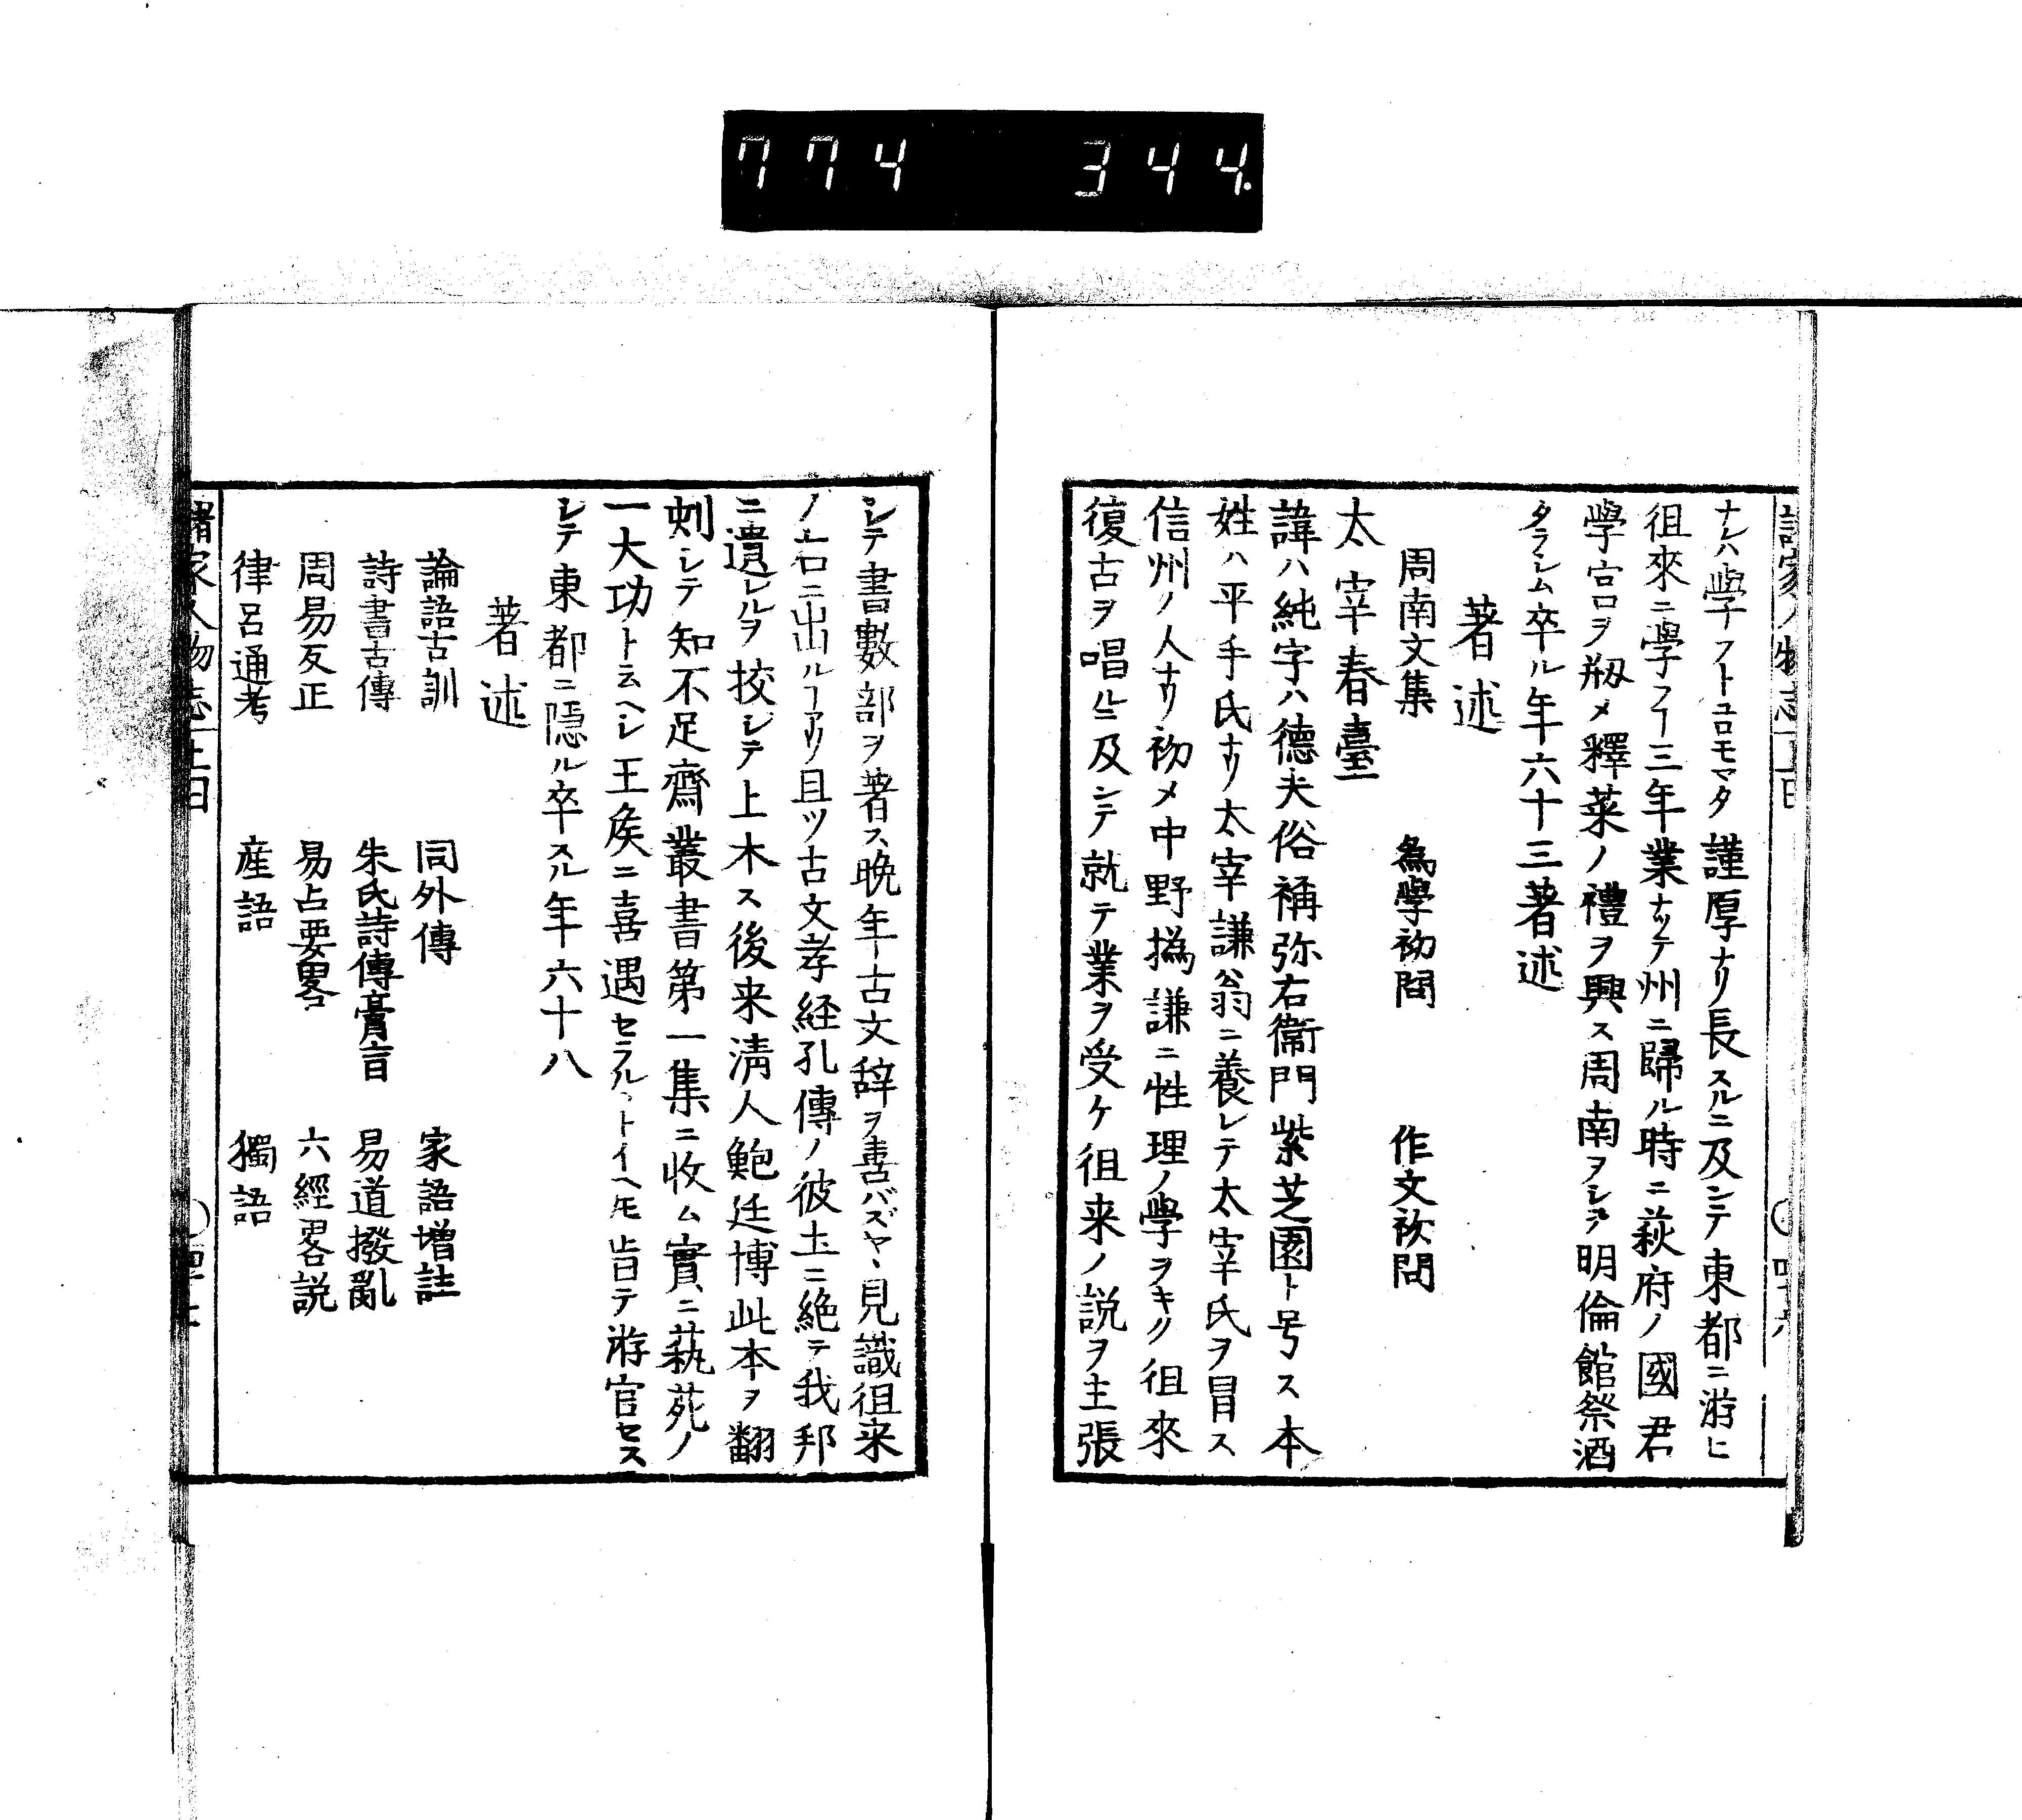 774 344.
諸家人物志
ナレハ學フトコロモマタ謹厚ナリ長スルニ及ンテ東都ニ游ヒ
徂來ニ學フヿ三年業ナツテ州ニ歸ル時ニ萩府ノ國君
學宮ヲ剏メ釋菜ノ禮ヲ興ス周南ヲシテ明倫館祭酒
タラシム卒ル年六十三著述
著述
周南文集 為學初問 作文初問
太宰春臺
諱ハ純字ハ德夫俗稱弥右衞門紫芝園ト号ス本
姓ハ平手氏ナリ太宰謙翁ニ養レテ太宰氏ヲ冒ス
信州ノ人ナリ初メ中野撝謙ニ性理ノ學ヲキク徂來
復古ヲ唱ルニ及ンテ就テ業ヲ受ケ徂来ノ説ヲ主張
シテ書數部ヲ著ス晩年古文辞ヲ喜バズヤヽ見識徂来
ノ右ニ出ルヿアリ且ツ古文孝経孔傳ノ彼土ニ絶テ我邦
ニ遺レルヲ挍シテ上木ス後来淸人鮑廷博此本ヲ翻
刺シテ知不足齋叢書第一集ニ收ム實ニ藝苑ノ
一大功ト云ヘシ王矦ニ喜遇セラルヽトイヘ𪜈皆テ游官セス
シテ東都ニ隱ル卒スル年六十八
著述
論語古訓 同外傳 家語增註
詩書古傳 朱氏詩傳膏肓 易道撥亂
周易反正 易占要畧 六經畧説
律呂通考 産語 獨語
諸家人物志